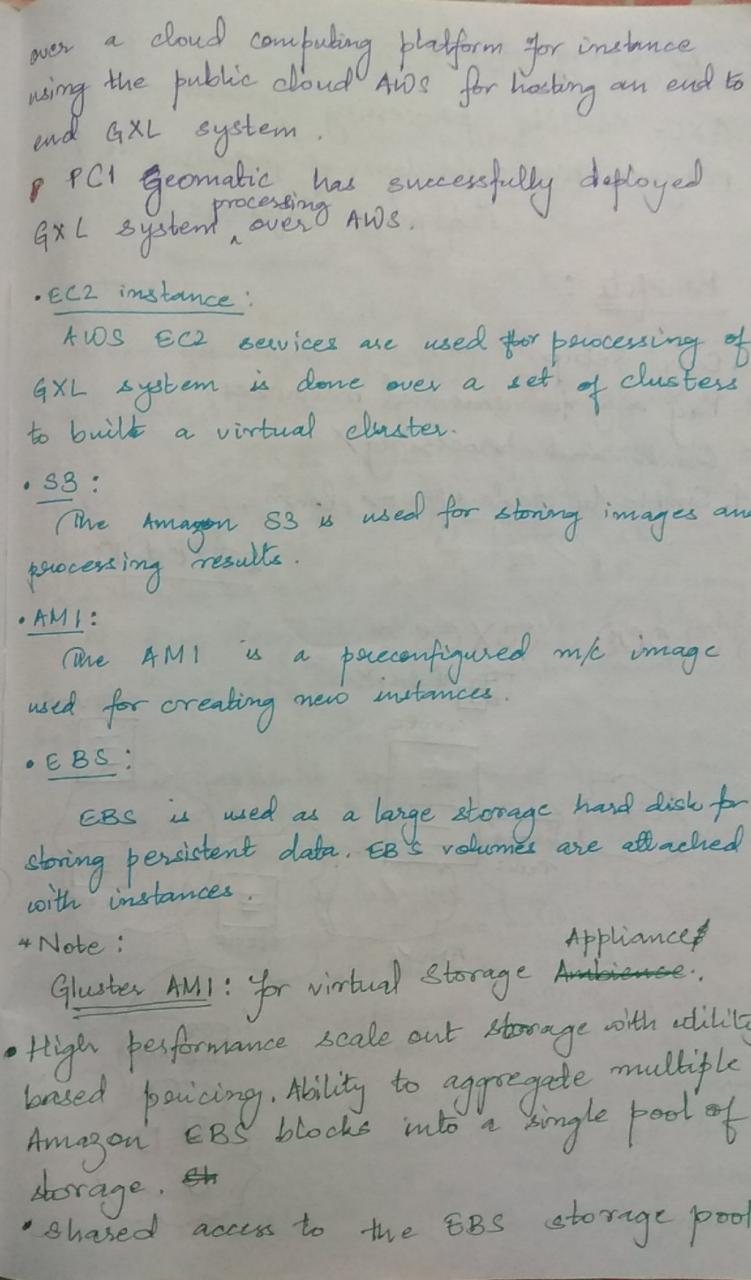 over a cloud computing platform for instance
using the public cloud AWS for hosting an end to
end GXL system.
PCI Geomatic has successfully deployed
processing
GXL system ^ over AWS.
• EC2 instance:
AWS EC2 services are used for processing of
GXL system is done over a set of clusters
to built a virtual cluster.
• S3:
The Amazon S3 is used for storing images an
processing results.
• AMI:
The AMI is a preconfigured m/c image
used for creating new instances.
• EBS:
EBS is used as a large storage hard disk for
storing persistent data. EBS volumes are attached
with instances.
* Note:
Appliance
Gluster AMI: for virtual Storage Ambience.
• High performance scale out storage with utility
based pricing. Ability to aggregate multiple
Amazon EBS blocks into a single pool of
storage. Sh
• Shared access to the EBS storage pool